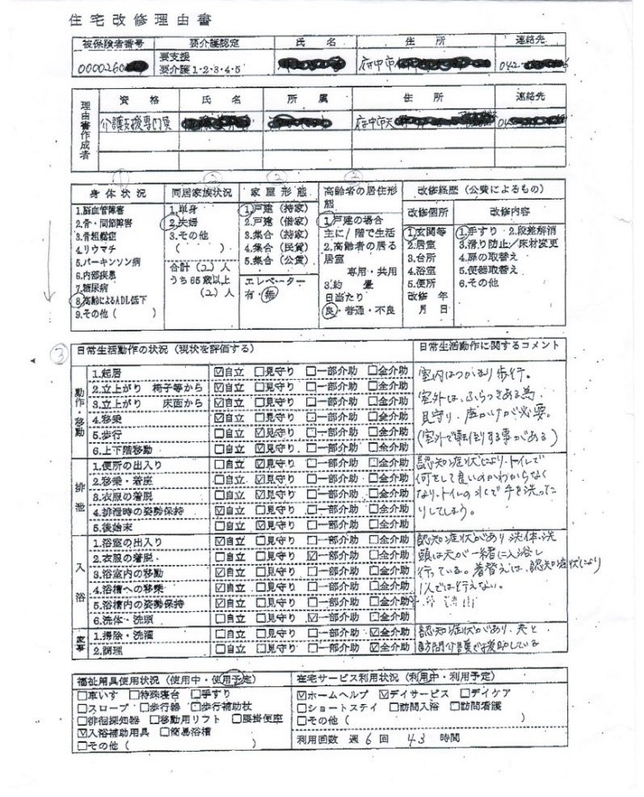 住宅改修理由書
被保険者番号 要介護認定 氏名 住所 連絡先
0000260 要支援 府中市 042
要介護1・2・3・4・5
理由書作成者
資格 氏名 所属 住所 連絡先
介護支援専門員 府中市 04
① ② ② ②
身体状況 同居家族状況 家屋形態 高齢者の居住形態 改修経歴(公費によるもの)
1.脳血管障害
2.骨・関節障害
3.骨粗鬆症
4.リウマチ
5.パーキンソン病
6.内部疾患
7.糖尿病
8.高齢によるADL低下
9.その他( )
1.単身
2.夫婦
3.その他
( )
合計(2)人
うち65歳以上
(2)人
1.戸建(持家)
2.戸建(借家)
3.集合(持家)
4.集合(民賃)
5.集合(公賃)
エレベーター
有・無
1.戸建の場合
主に/階で生活
2.高齢者の居る
居室
専用・共用
3.約 畳
日当たり
良・普通・不良
改修個所 改修内容
1.玄関等
2.居室
3.台所
4.浴室
5.便所
改修 年
月 日
1.手すり・2.段差解消
3.滑り防止/床材変更
4.扉の取替え
5.便器取替え
6.その他
③
日常生活動作の状況(現状を評価する) 日常生活動作に関するコメント
動作・移動
1.起居 ☑自立 □見守り □一部介助 □全介助
2.立上がり 椅子等から ☑自立 □見守り □一部介助 □全介助
3.立上がり 床面から ☑自立 □見守り □一部介助 □全介助
4.移乗 ☑自立 □見守り □一部介助 □全介助
5.歩行 □自立 ☑見守り □一部介助 □全介助
6.上下階移動 □自立 ☑見守り □一部介助 □全介助
室内はつかまり歩行。
室外は、ふらつきある為、
見守り、声かけが必要。
(室外で転倒する事がある)
排泄
1.便所の出入り □自立 ☑見守り □一部介助 □全介助
2.移乗・着座 □自立 ☑見守り □一部介助 □全介助
3.衣服の着脱 □自立 ☑見守り □一部介助 □全介助
4.排泄時の姿勢保持 ☑自立 □見守り □一部介助 □全介助
5.後始末 □自立 ☑見守り □一部介助 □全介助
認知症状により、トイレで
何をして良いのかわからなく
なり、トイレの水で手を洗った
りしてしまう。
入浴
1.浴室の出入り ☑自立 □見守り □一部介助 □全介助
2.衣服の着脱 □自立 □見守り ☑一部介助 □全介助
3.浴室内の移動 ☑自立 □見守り □一部介助 □全介助
4.浴槽への移乗 ☑自立 □見守り □一部介助 □全介助
5.浴槽内の姿勢保持 ☑自立 □見守り □一部介助 □全介助
6.洗体・洗頭 □自立 □見守り ☑一部介助 □全介助
認知症状があり洗体、洗
頭は夫が一緒に入浴し
行っている。着替えは、認知症状により
1人では行えない。
家事
1.掃除・洗濯 □自立 □見守り □一部介助 ☑全介助
2.調理 □自立 □見守り □一部介助 ☑全介助
認知症状があり、夫と
訪問介護で援助している
福祉用具使用状況(使用中・使用予定)
□車いす □特殊寝台 □手すり
□スロープ □歩行器 □歩行補助杖
□徘徊探知器 □移動用リフト □腰掛便座
☑入浴補助用具 □簡易浴槽
□その他( )
在宅サービス利用状況(利用中・利用予定)
☑ホームヘルプ ☑デイサービス □デイケア
□ショートステイ □訪問入浴 □訪問看護
□その他( )
利用回数 週 6 回 43 時間